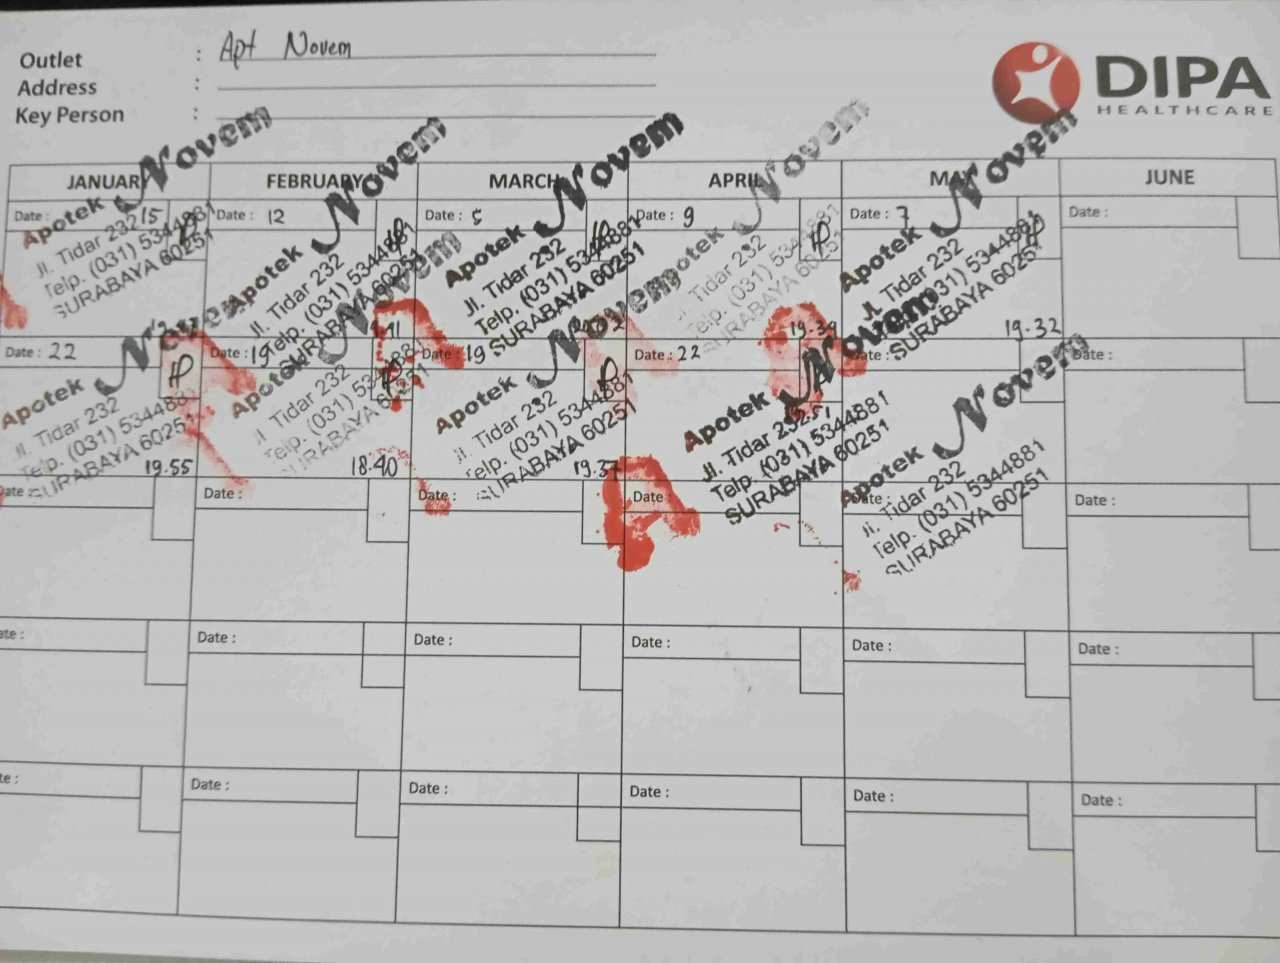 Outlet : Apt Novem
Address :
Key Person :
DIPA
HEALTHCARE
JANUARY FEBRUARY MARCH APRIL MAY JUNE
Date : 15 Date : 12 Date : 5 Date : 9 Date : 7 Date :
Apotek Novem
Jl. Tidar 232
Telp. (031) 5344881
SURABAYA 60251
Apotek Novem
Jl. Tidar 232
Telp. (031) 5344881
SURABAYA 60251
Apotek Novem
Jl. Tidar 232
Telp. (031) 5344881
SURABAYA 60251
Apotek Novem
Jl. Tidar 232
Telp. (031) 5344881
SURABAYA 60251
Apotek Novem
Jl. Tidar 232
Telp. (031) 5344881
SURABAYA 60251
19.32
Date : 22 Date : 19 Date : 19 Date : 22 Date : Date :
Apotek Novem
Jl. Tidar 232
Telp. (031) 5344881
SURABAYA 60251
19.55
Apotek Novem
Jl. Tidar 232
Telp. (031) 5344881
SURABAYA 60251
18.40
Apotek Novem
Jl. Tidar 232
Telp. (031) 5344881
SURABAYA 60251
19.37
Apotek Novem
Jl. Tidar 232
Telp. (031) 5344881
SURABAYA 60251
Apotek Novem
Jl. Tidar 232
Telp. (031) 5344881
SURABAYA 60251
Date : Date : Date : Date : Date : Date :
Date : Date : Date : Date : Date : Date :
Date : Date : Date : Date : Date : Date :